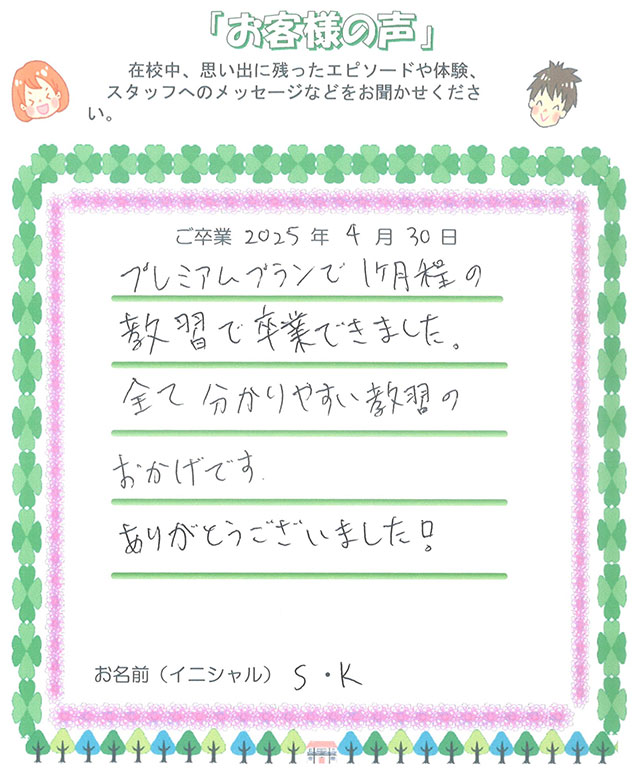 「お客様の声」
在校中、思い出に残ったエピソードや体験、
スタッフへのメッセージなどをお聞かせくださ
い。
ご卒業 2025 年 4 月 30 日
プレミアムプランで 1ヶ月程の
教習で卒業できました。
全て分かりやすい教習の
おかげです.
ありがとうございました!
お名前（イニシャル） S・K